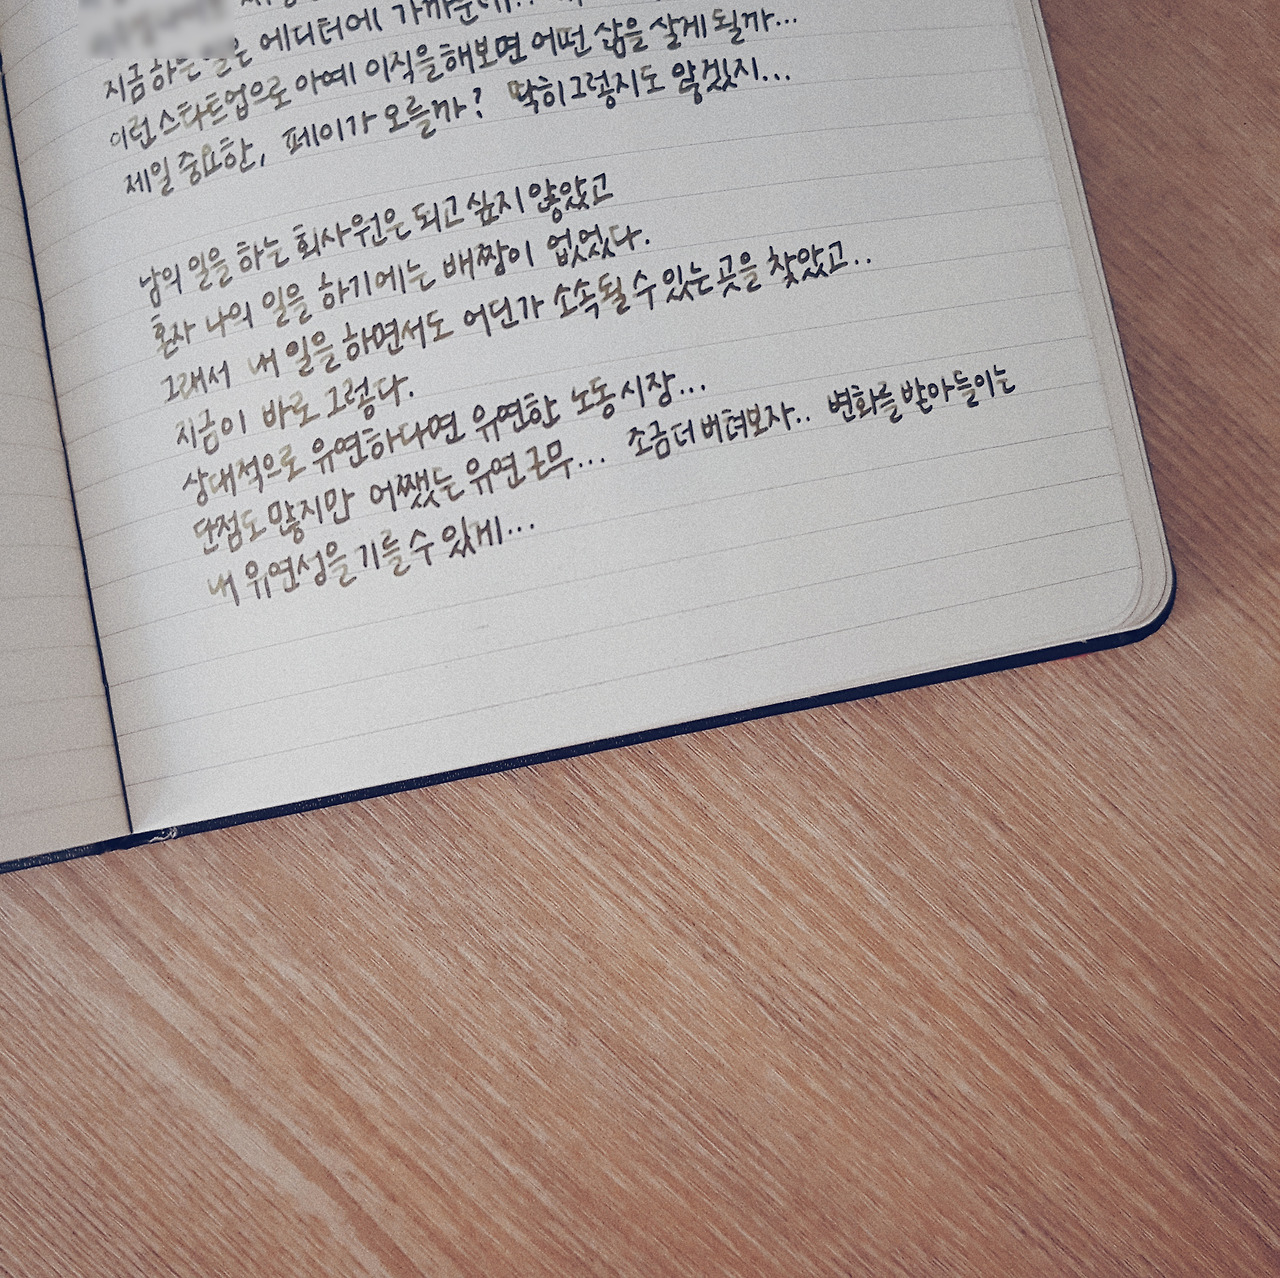 지금 하는 일은 에디터에 가까운데..
이런 스타트업으로 아예 이직을해보면 어떤 삶을 살게 될까...
제일 중요한, 페이가 오를까? 딱히 그렇지도 않겠지...
남의 일을 하는 회사원은 되고 싶지 않았고
혼자 나의 일을 하기에는 배짱이 없었다.
그래서 내 일을 하면서도 어딘가 소속될 수 있는 곳을 찾았고..
지금이 바로 그렇다.
상대적으로 유연하다면 유연한 노동시장...
단점도 많지만 어쨌는 유연근무... 조금 더 버텨보자.. 변화를 받아들이는
내 유연성을 기를 수 있게...